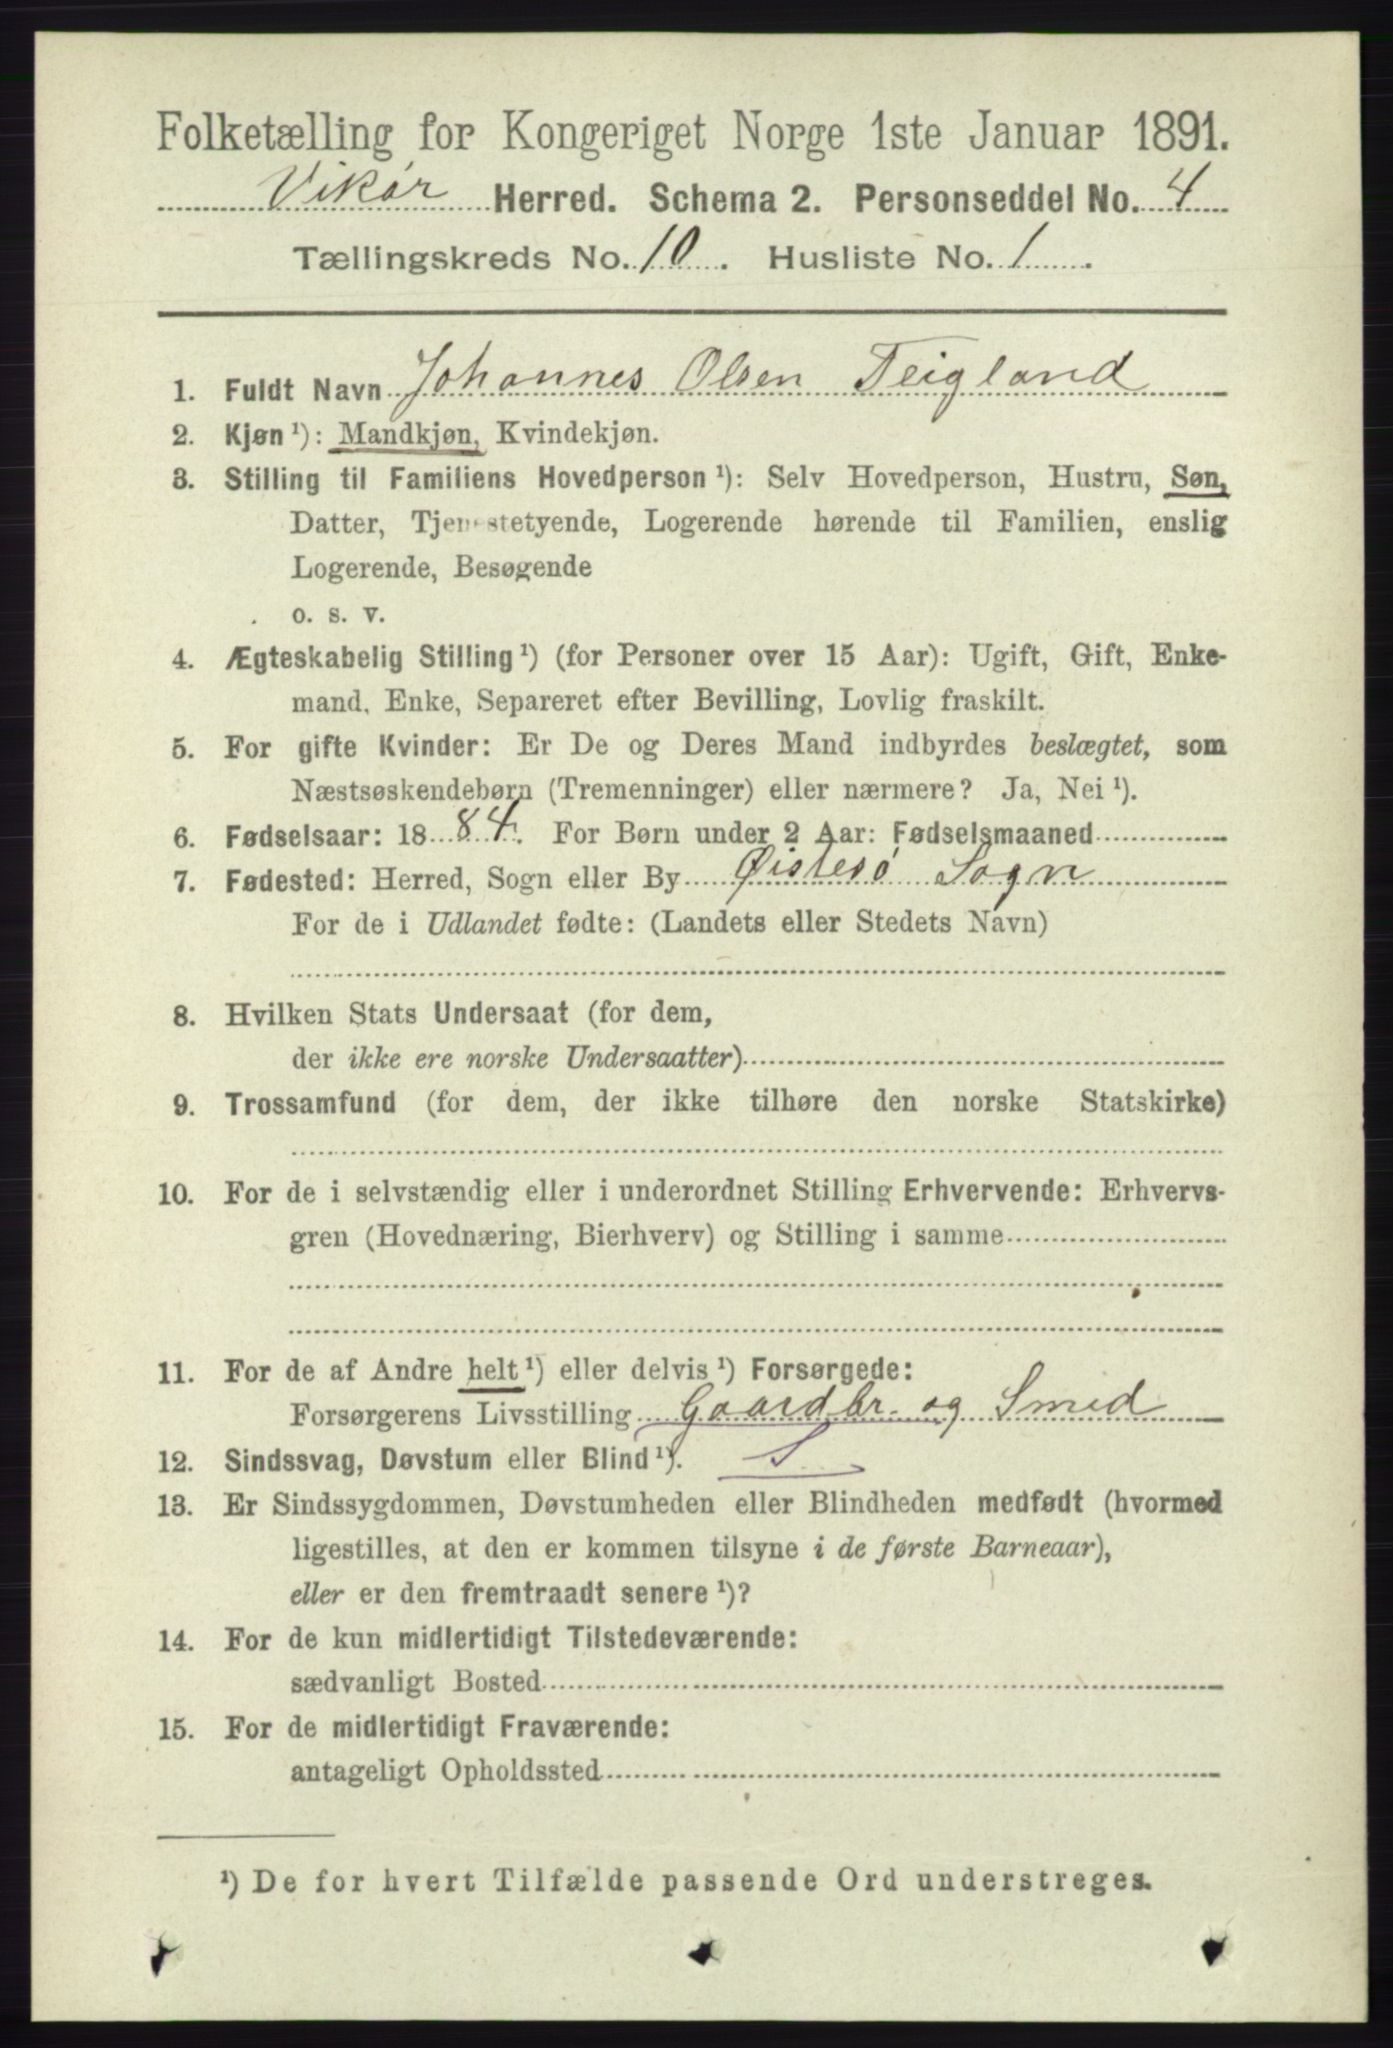 Folketælling for Kongeriget Norge 1ste Januar 1891.
Vikør Herred. Schema 2. Personseddel No. 4
Tællingskreds No. 10. Husliste No. 1.
1. Fuldt Navn Johannes Olsen Teigland
2. Kjøn ¹): Mandkjøn, Kvindekjøn.
3. Stilling til Familiens Hovedperson ¹): Selv Hovedperson, Hustru, Søn,
Datter, Tjenestetyende, Logerende hørende til Familien, enslig
Logerende, Besøgende
o. s. v.
4. Ægteskabelig Stilling ¹) (for Personer over 15 Aar): Ugift, Gift, Enke-
mand, Enke, Separeret efter Bevilling, Lovlig fraskilt.
5. For gifte Kvinder: Er De og Deres Mand indbyrdes beslægtet, som
Næstsøskendebørn (Tremenninger) eller nærmere? Ja, Nei ¹).
6. Fødselsaar: 1884. For Børn under 2 Aar: Fødselsmaaned
7. Fødested: Herred, Sogn eller By Øistesø Sogn
For de i Udlandet fødte: (Landets eller Stedets Navn)
8. Hvilken Stats Undersaat (for dem,
der ikke ere norske Undersaatter)
9. Trossamfund (for dem, der ikke tilhøre den norske Statskirke)
10. For de i selvstændig eller i underordnet Stilling Erhvervende: Erhvervs-
gren (Hovednæring, Bierhverv) og Stilling i samme
11. For de af Andre helt ¹) eller delvis ¹) Forsørgede:
Forsørgerens Livsstilling Gaardbr. og Smed
12. Sindssvag, Døvstum eller Blind ¹). S
13. Er Sindssygdommen, Døvstumheden eller Blindheden medfødt (hvormed
ligestilles, at den er kommen tilsyne i de første Barneaar),
eller er den fremtraadt senere ¹)?
14. For de kun midlertidigt Tilstedeværende:
sædvanligt Bosted
15. For de midlertidigt Fraværende:
antageligt Opholdssted
¹) De for hvert Tilfælde passende Ord understreges.